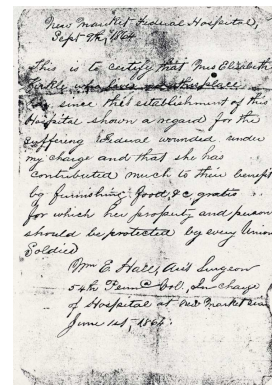 New Market Federal Hospital,
Sept 9th, 1864
This is to certify that Mrs Elizabeth
who lives at this place
has since the establishment of this
Hospital shown a regard for the
suffering Federal wounded under
my charge and that she has
contributed much to their benefit
by furnishing food, &c gratis
for which her property and person
should be protected by every Union
Soldier
Wm E. Hall, Surgeon
54th Penn Vol, In charge
of Hospital at New Market
June 1st, 1864